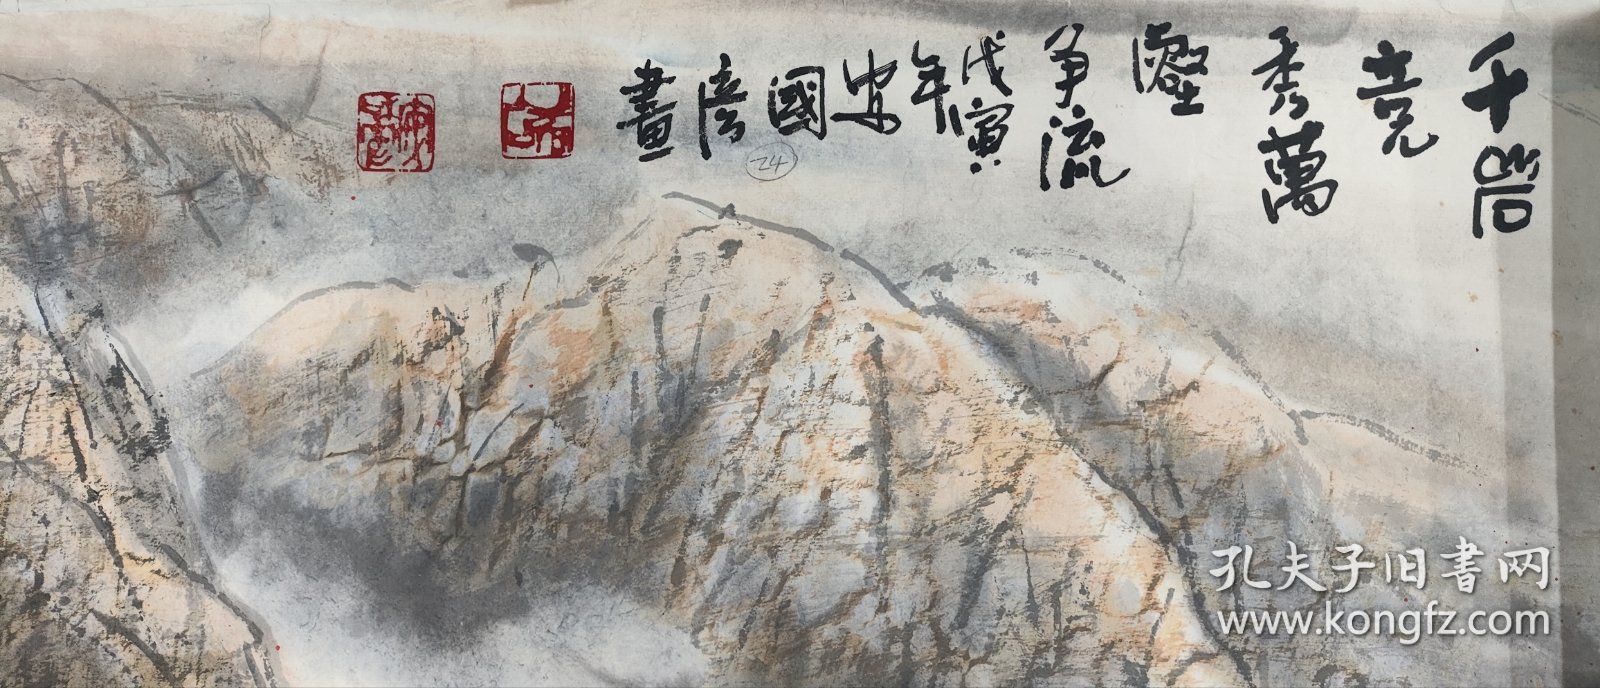 千岩
竞
秀萬
壑
争流
戊寅
年
國
畫
24
孔夫子旧書网
www.kongfz.com